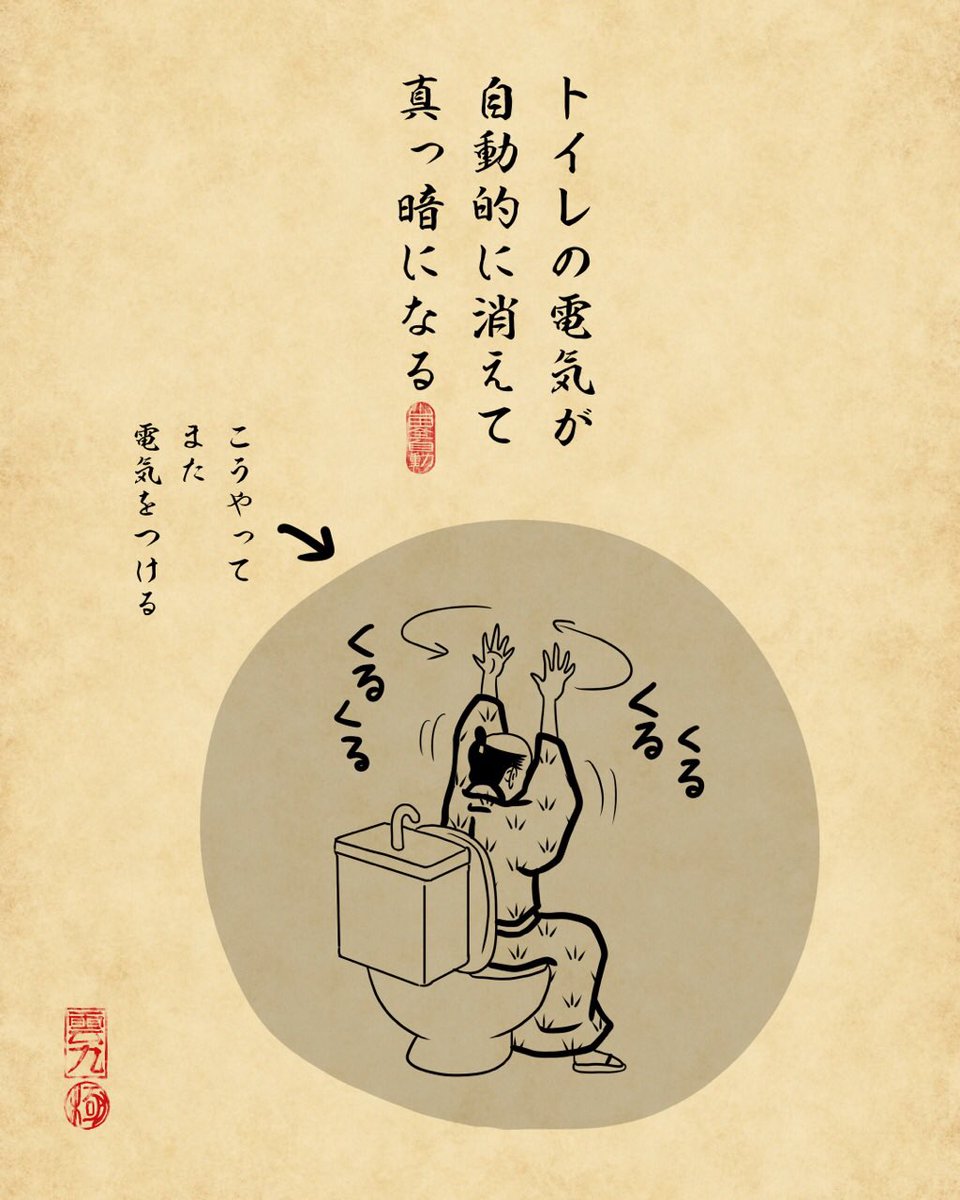 トイレの電気が
自動的に消えて
真っ暗になる
こうやって
また
電気をつける
くる
くる
くる
くる